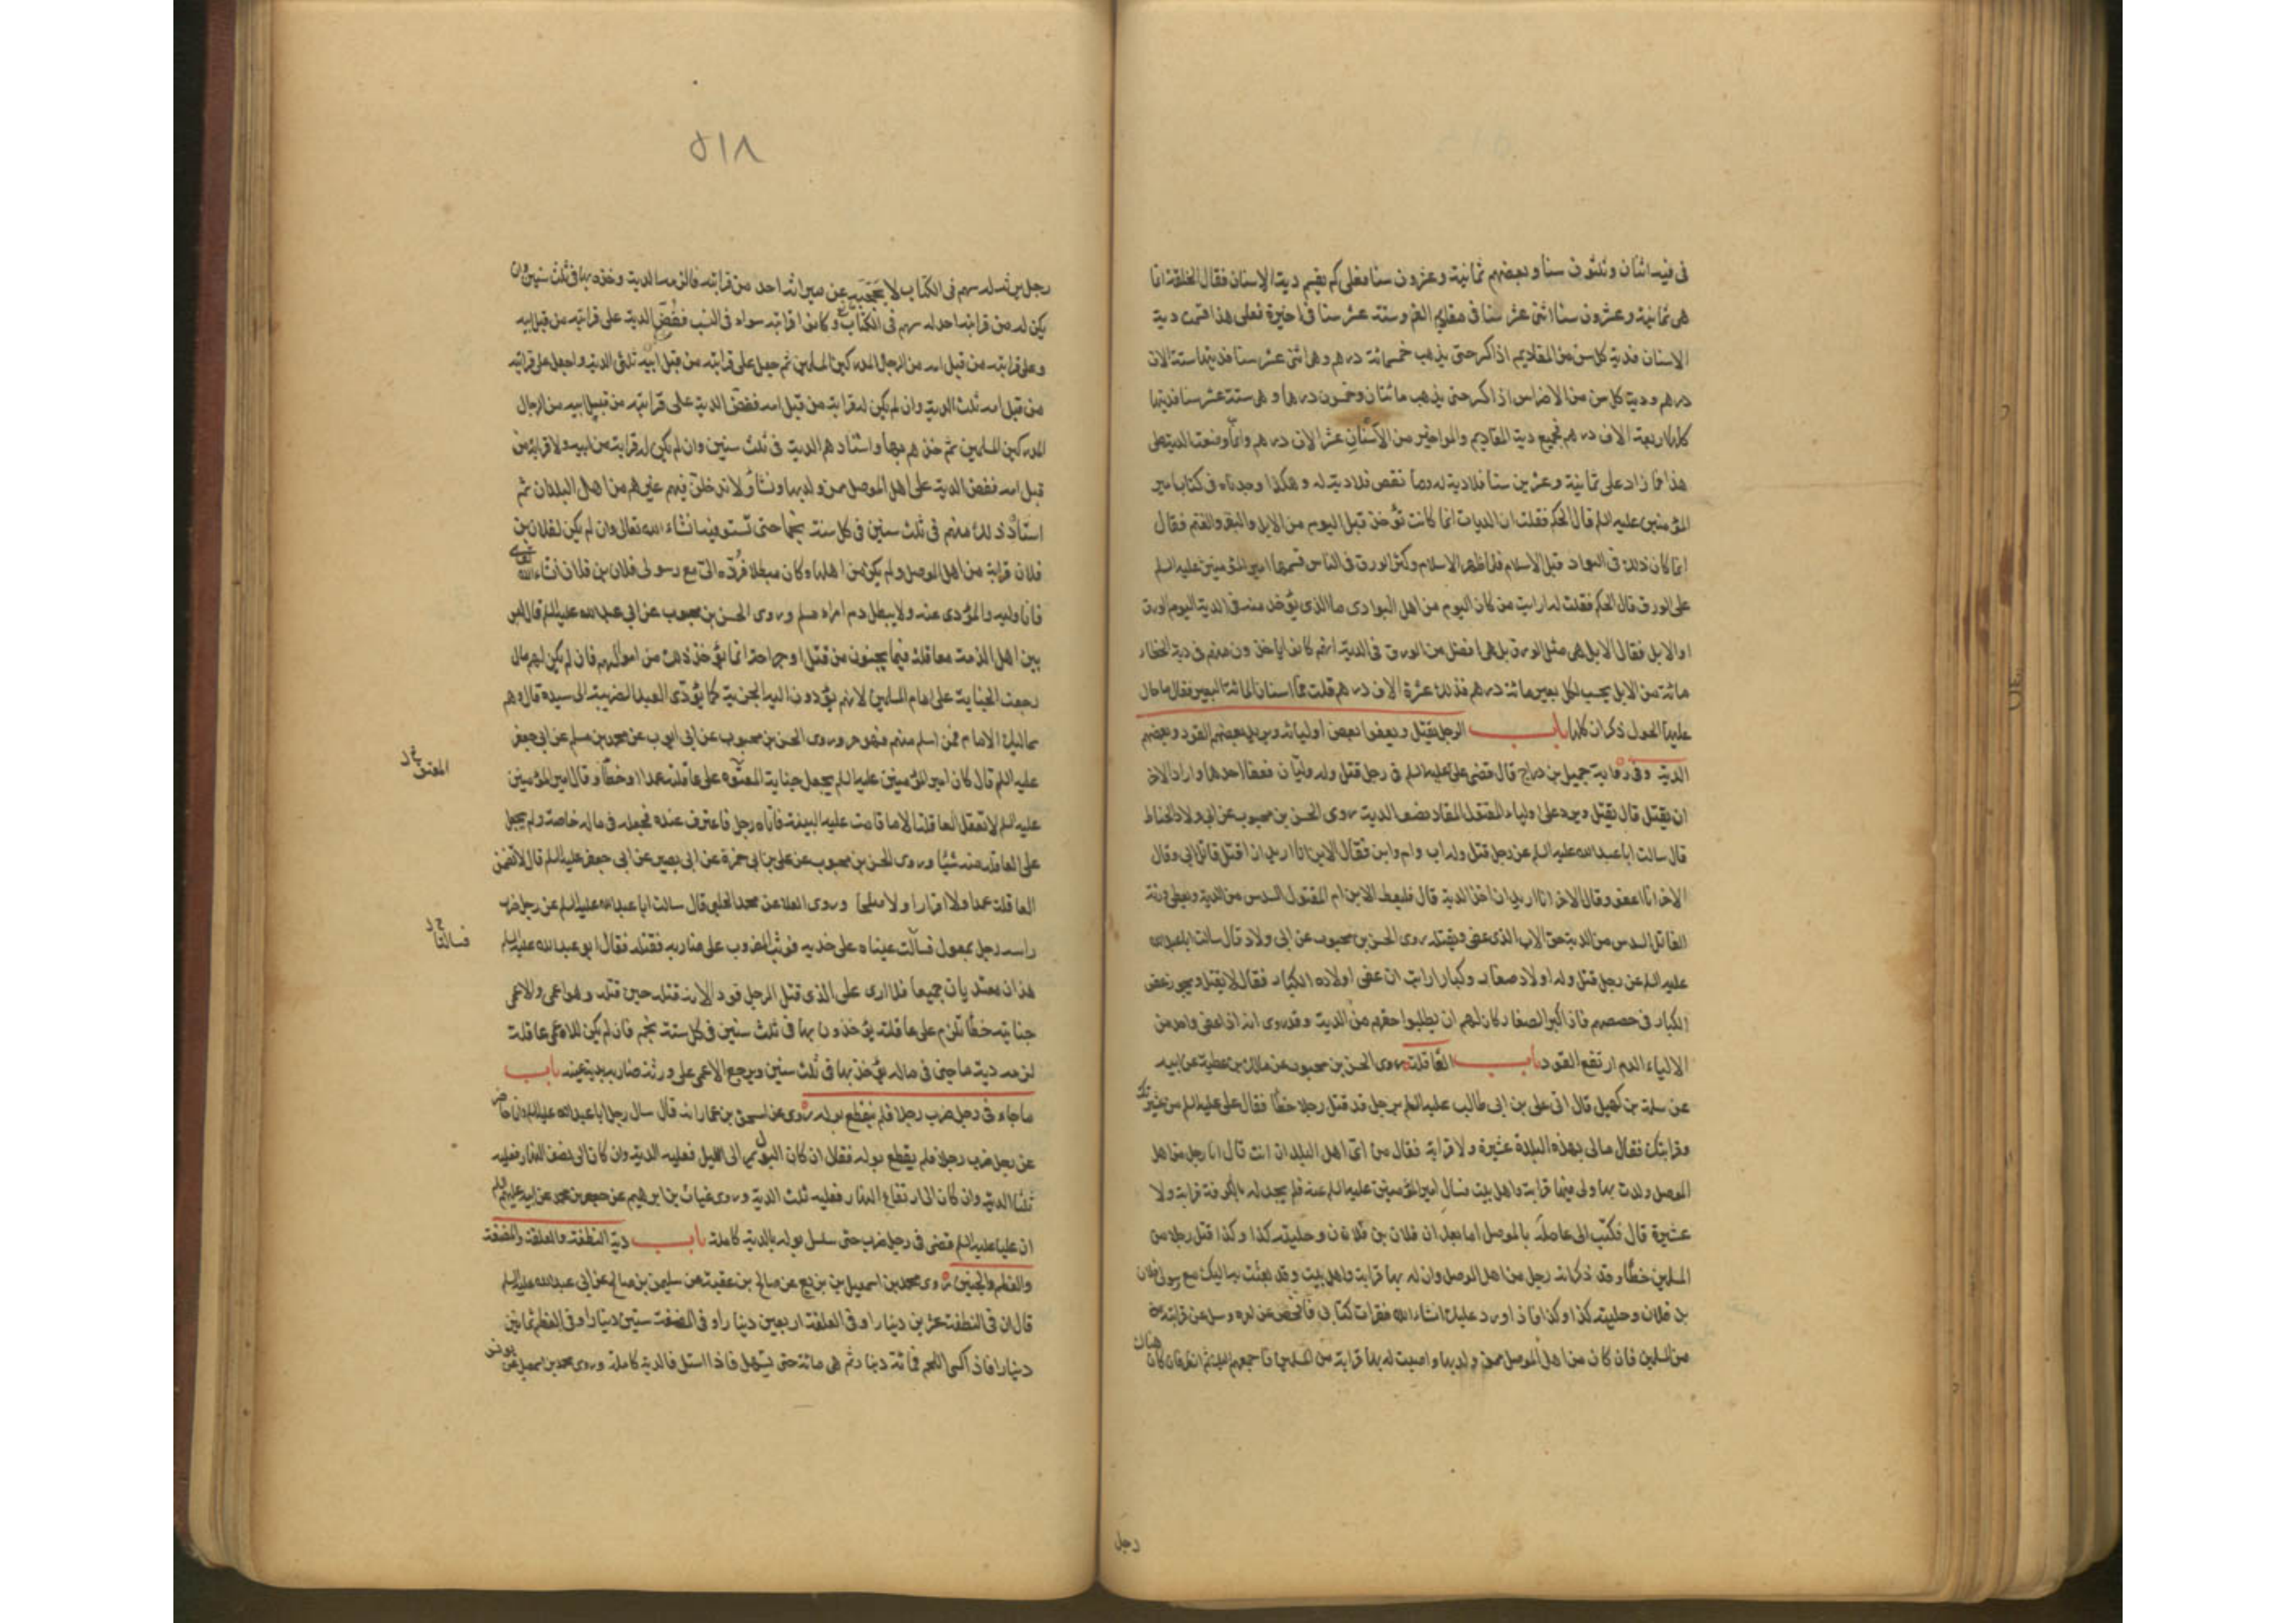 فى فيه اثنان وثلثون سنا وبعضهم ثمانية وعشرون سنا فعلى كم يقسم دية الاسنان فقال الخلقة انما
هى ثمانية وعشرون سنا اثنى عشر سنا فى مقاديم الفم وستة عشر سنا فى مواخيره فعلى هذا قسمت دية
الاسنان فدية كل سن من المقاديم اذا كسر حتى يذهب خمسمائة درهم وهى اثنى عشر سنا فديتها ستة الاف
درهم ودية كل سن من الاضراس اذا كسر حتى يذهب مائتان وخمسون درهما وهى ستة عشر سنا فديتها
كلها اربعة الاف درهم فجميع دية المقاديم والمواخير من الاسنان عشرة الاف درهم وانما وضعت الدية على
هذا فما زاد على ثمانية وعشرين سنا فلا دية له وما نقص فلا دية له وهكذا وجدناه فى كتاب امير
المؤمنين عليه السلم قال الحكم فقلت ان الديات انما كانت تؤخذ قبل اليوم من الابل والبقر والغنم فقال
انما كان ذلك فى البوادى قبل الاسلام فلما ظهر الاسلام وكثر الورق فى الناس قسمها امير المؤمنين عليه السلم
على الورق قال الحكم فقلت له ارايت من كان اليوم من اهل البوادى ما الذى يؤخذ منه فى الدية اليوم الورق
او الابل فقال الابل هى مثل الورق بل هى افضل من الورق فى الدية انهم كانوا ياخذون منهم فى دية الخطاء
مائة من الابل يحسب لكل بعير مائة درهم فذلك عشرة الاف درهم قلت فما اسنان المائة البعير فقال ما حال
عليها الحول ذكران كلها باب الرجل يقتل ويعفوا بعض اوليائه ويريد بعضهم القود وبعضهم
الدية وفى رواية جميل بن دراج قال قضى على عليه السلم فى رجل قتل وله وليان فعفا احدهما واراد الاخر
ان يقتل قال يقتل ويرد على اولياء المقتول المقاد نصف الدية روى الحسن بن محبوب عن ابى ولاد الحناط
قال سالت ابا عبد الله عليه السلم عن رجل قتل وله اب وام وابن فقال الابن انا اريد ان اقتل قاتل ابى وقال
الاخر انا اعفو وقال الاخر انا اريد ان اخذ الدية قال فليعط الابن ام المقتول السدس من الدية ويعطى ورثة
القاتل السدس من الدية حق الاب الذى عفى ويقتله روى الحسن بن محبوب عن ابى ولاد قال سالت ابا عبد الله
عليه السلم عن رجل قتل وله اولاد صغار وكبار ارايت ان عفى اولاده الكبار فقال لا يقتل ويجوز عفو
الكبار فى حصصهم فاذا كبر الصغار كان لهم ان يطلبوا حقهم من الدية وقد روى انه اذا عفى واحد من
الاولياء الدم ارتفع القود باب العاقلة روى الحسن بن محبوب عن مالك بن عطية عن ابيه
عن سلمة بن كهيل قال اتى على بن ابى طالب عليه السلم برجل قد قتل رجلا خطأ فقال على عليه السلم من عشيرتك
وقرابتك فقال مالى بهذه البلدة عشيرة ولا قرابة فقال من اى اهل البلدان انت قال انا رجل من اهل
الموصل ولدت بها ولى فيها قرابة واهل بيت فسال امير المؤمنين عليه السلم عنه فلم يجد له بالكوفة قرابة ولا
عشيرة قال فكتب الى عامله بالموصل اما بعد ان فلان بن فلان وحليته كذا وكذا قتل رجلا من
المسلمين خطأ وقد ذكر انه رجل من اهل الموصل وان له بها قرابة واهل بيت وقد بعثت به اليك مع رسولى فلان
بن فلان وحليته كذا وكذا فاذا ورد عليك انشاء الله فقرات كتابى فافحص عن امره وسل عن قرابته
من المسلمين فان كان من اهل الموصل ممن ولد بها واصبت له بها قرابة من المسلمين فاجمعهم اليك ثم انظر فان كان هناك
رجل
۵۱۸
رجل يرثه له سهم فى الكتاب لا يحجبه عن ميراثه احد من قرابته فالزمه الدية وخذه بها فى ثلث سنين وان
يكن له من قرابته احد له سهم فى الكتاب وكانوا قرابته سواء فى النسب ففض الدية على قرابته من قبل ابيه
وعلى قرابته من قبل امه من الرجال المدركين المسلمين ثم جعل على قرابته من قبل ابيه ثلثى الدية واجعل على قرابته
من قبل امه ثلث الدية وان لم يكن له قرابة من قبل امه ففض الدية على قرابته من قبل ابيه من الرجال
المدركين المسلمين ثم خذهم بها واستادهم الدية فى ثلث سنين وان لم يكن له قرابة من ابيه ولا قرابة من
قبل امه ففض الدية على اهل الموصل ممن ولد بها ونشأ ولا تدخلن فيهم غيرهم من اهل البلدان ثم
استاد ذلك منهم فى ثلث سنين فى كل سنة نجما حتى تستوفيه انشاء الله تعالى وان لم يكن لفلان بن
فلان قرابة من اهل الموصل ولم يكن من اهلها وكان مبطلا فرده الى مع رسولى فلان بن فلان انشاء الله
فانا وليه والمؤدى عنه ولا يبطل دم امرء مسلم وروى الحسن بن محبوب عن ابى عبد الله عليه السلم قال ليس
بين اهل الذمة معاقلة فيما يجنون من قتل او جراحة انما يؤخذ ذلك من اموالهم فان لم يكن لهم مال
رجعت الجناية على امام المسلمين لانهم يؤدون اليه الجزية كما يؤدى العبد الضريبة الى سيده قال وهم
مماليك الامام فمن اسلم منهم فهو حر وروى الحسن بن محبوب عن ابى ايوب عن محمد بن مسلم عن ابى جعفر
عليه السلم قال كان امير المؤمنين عليه السلم يجعل جناية المعتوه على عاقلته عمدا او خطأ وقال امير المؤمنين
المعتق
عليه السلم لا تعقل العاقلة الا ما قامت عليه البينة فاتاه رجل فاعترف عنده فجعله فى ماله خاصة ولم يجعل
على العاقلة منه شيئا وروى الحسن بن محبوب عن على بن ابى حمزة عن ابى بصير عن ابى جعفر عليه السلم قال لا تضمن
العاقلة عمدا ولا اقرارا ولا صلحا وروى العلا عن محمد الحلبى قال سالت ابا عبد الله عليه السلم عن رجل ضرب
راس رجل بمعول فسالت عيناه على خديه فوثب المضروب على ضاربه فقتله فقال ابو عبد الله عليه السلم
فسالتا
هذان معتديان جميعا فلا ارى على الذى قتل الرجل قود الانه قتله حين قتله وهو اعمى والاعمى
جنايته خطأ تلزم على عاقلته يؤخذون بها فى ثلث سنين فى كل سنة نجم فان لم يكن للاعمى عاقلة
لزمه دية ما جنى فى ماله يؤخذ بها فى ثلث سنين ويرجع الاعمى على ورثة ضاربه بدية عينيه باب
ماجاء فى رجل ضرب رجلا فلم ينقطع بوله روى عن اسحق بن عمار انه قال سال رجل ابا عبد الله عليه السلم وانا حاضر
عن رجل ضرب رجلا فلم ينقطع بوله فقال ان كان البول يمر الى الليل فعليه الدية وان كان الى نصف النهار فعليه
ثلثا الدية وان كان الى ارتفاع النهار فعليه ثلث الدية وروى غياث بن ابرهيم عن جعفر بن محمد عن ابيه عليهم السلم
ان عليا عليه السلم قضى فى رجل ضرب حتى سلسل بوله بالدية كاملة باب دية النطفة والعلقة والمضغة
والعظم والجنين روى محمد بن اسمعيل بن بزيع عن صالح بن عقبة عن سليمن بن صالح عن ابى عبد الله عليه السلم
قال ان فى النطفة عشرين دينارا وفى العلقة اربعين دينارا وفى المضغة ستين دينارا وفى العظم ثمانين
دينارا فاذا كسى اللحم فمائة دينار ثم هى مائة حتى يستهل فاذا استهل فالدية كاملة وروى محمد بن اسمعيل عن يونس